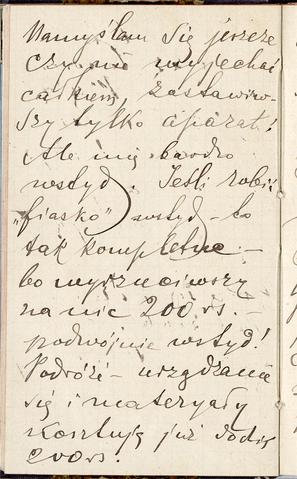 Namyślam się jeszcze
czy nie wyjechać
całkiem, zastawiw-
szy tylko aparat!
Ale mię bardzo
wstyd. Jeśli robić
„fiasko” wstyd – to
tak kompletne –
bo wyrzuciwszy
na nic 200 rs. –
podwójnie wstyd!
Podróż – urządzanie
się i materyały
kosztują już dotąd
200 rs.